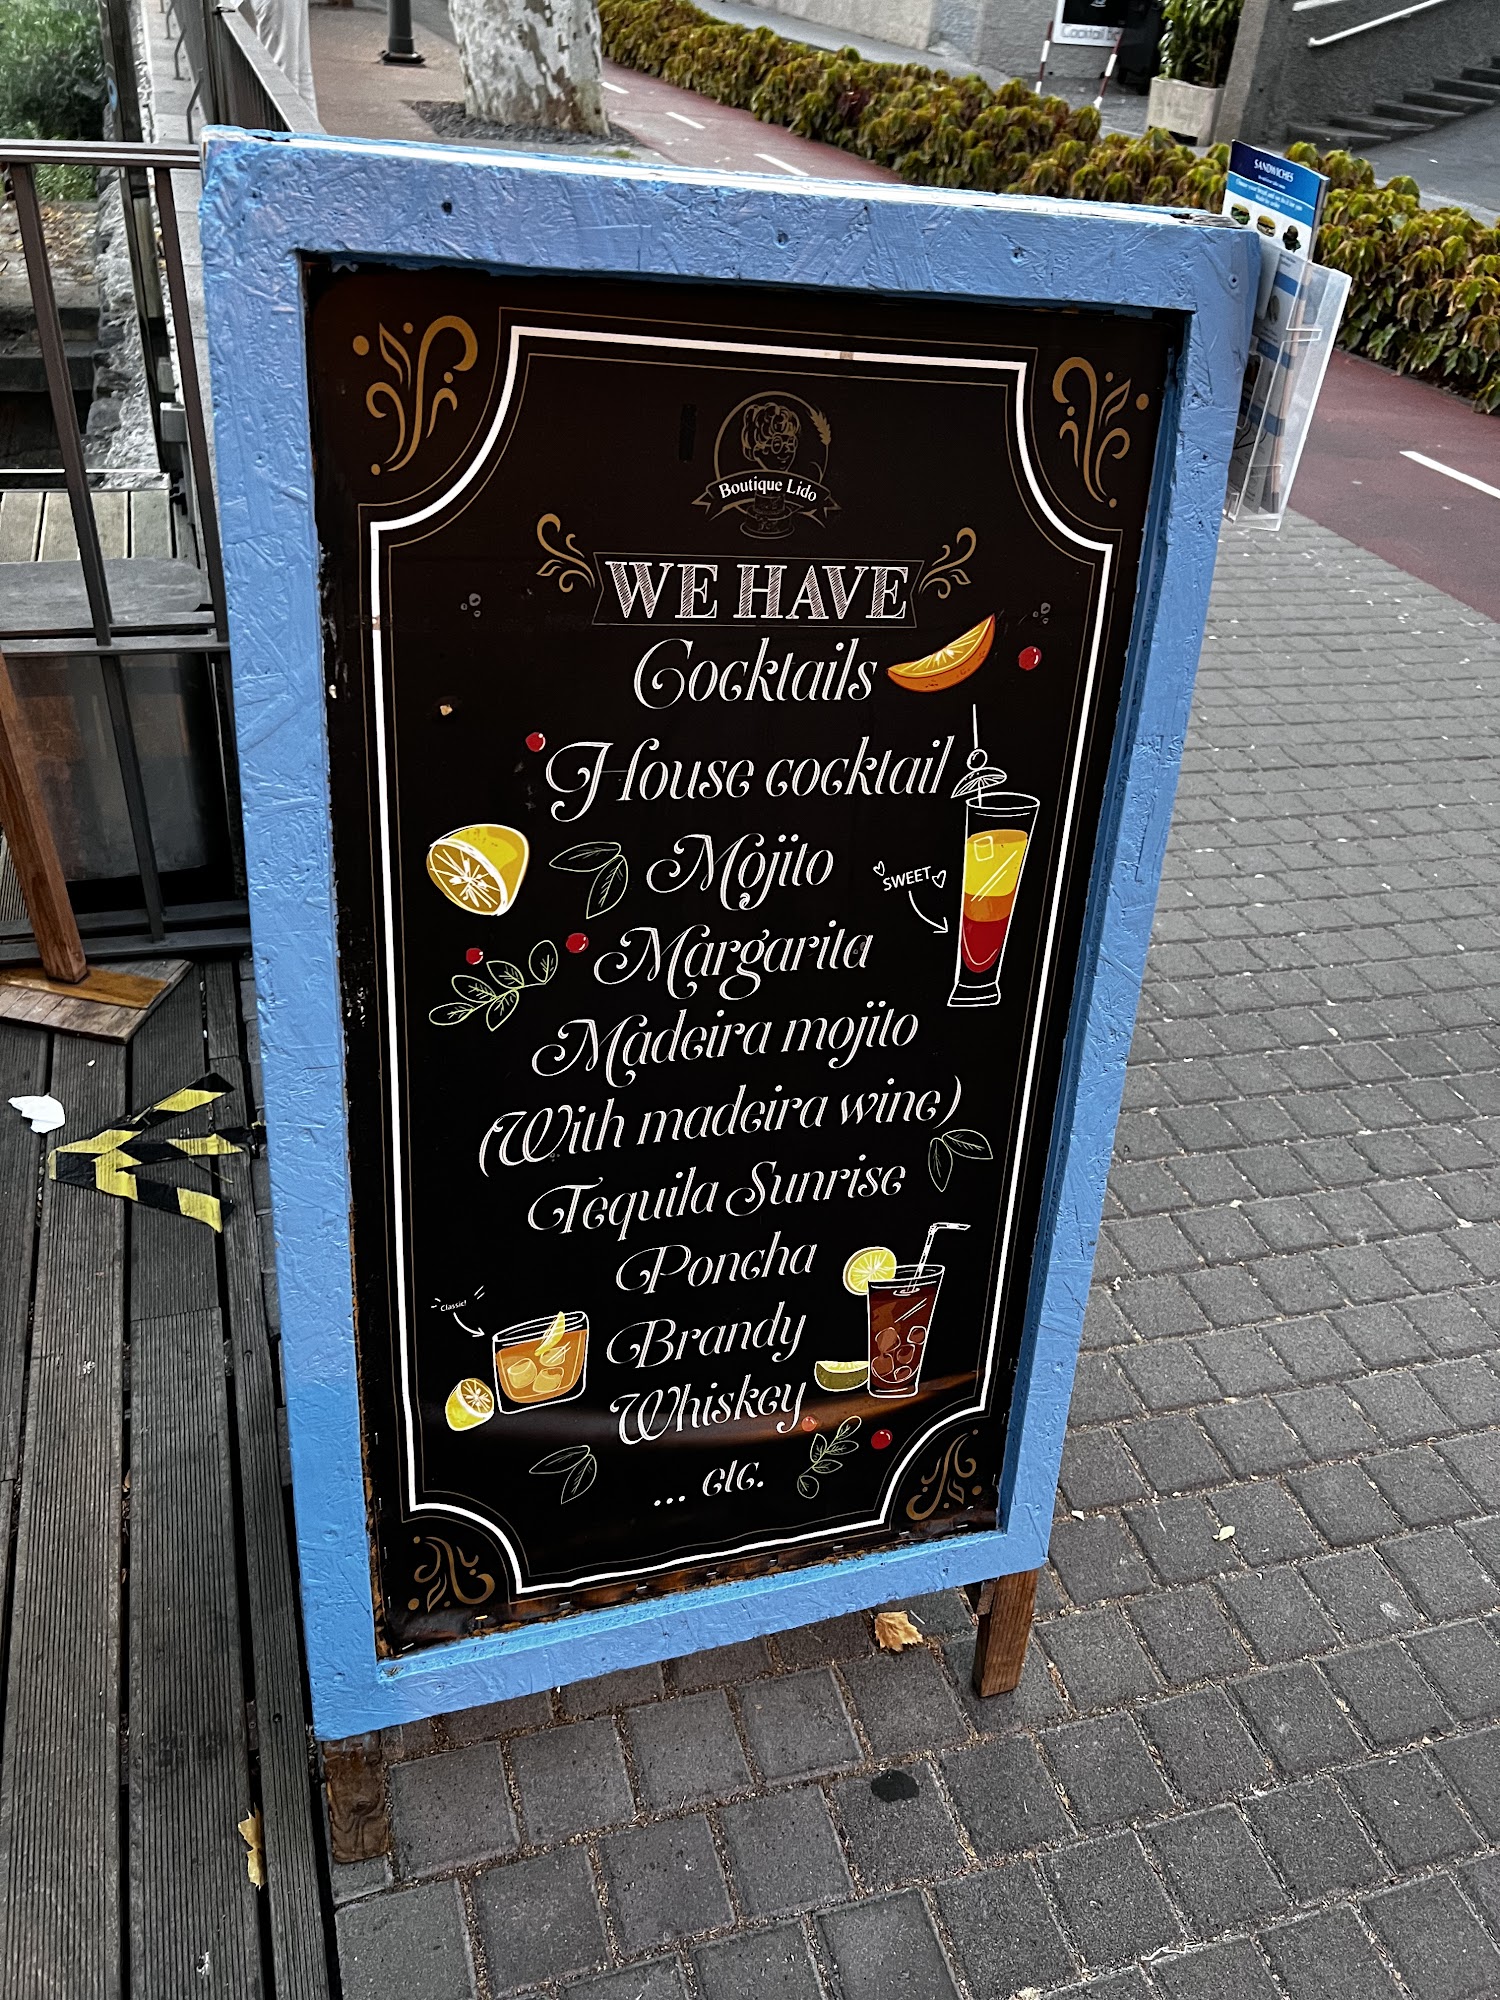 Cocktail
SANDWICHES
Boutique Lido
WE HAVE
Cocktails
House cocktail
Mojito
SWEET
Margarita
Madeira mojito
(With madeira wine)
Tequila Sunrise
Poncha
Classic!
Brandy
Whiskey
... etc.